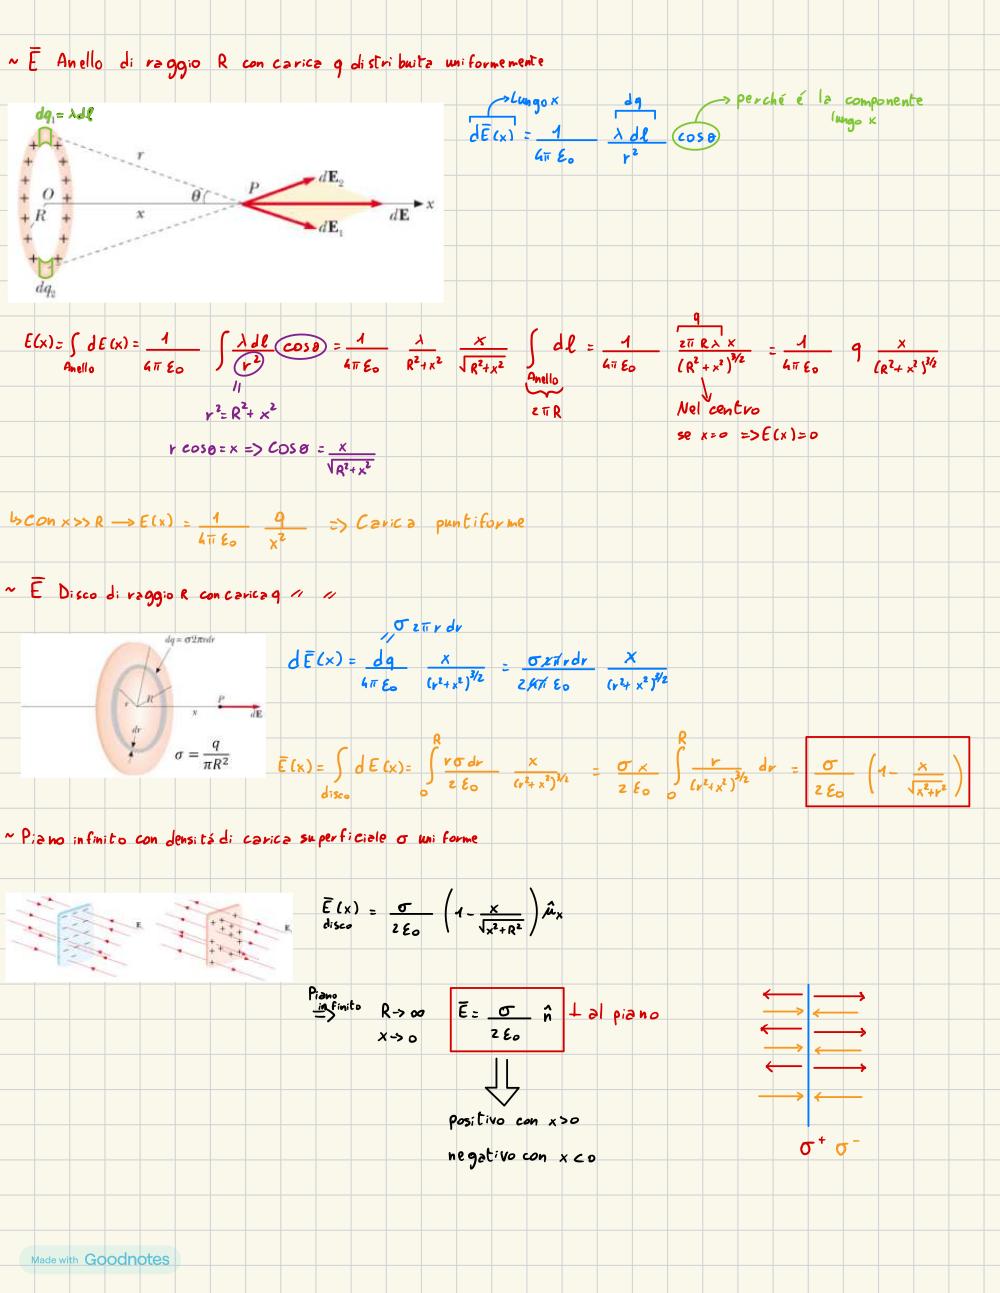 ~ E̅ Anello di raggio R con carica q distribuita uniformemente
dq₁ = λdl
r
O
R
x
θ
P
dE₂
dE
dE₁
x
dq₂
Lungo x
dq
perché é la componente
lungo x
dE̅(x) = 1/(4π ε₀) λ dl/r² cosθ
E(x) = ∫_Anello dE(x) = 1/(4π ε₀) ∫ λ dl/r² cosθ = 1/(4π ε₀) λ/(R²+x²) x/√(R²+x²) ∫_Anello dl = 1/(4π ε₀) 2π R λ x/(R²+x²)^3/2 = 1/(4π ε₀) q x/(R²+x²)^3/2
q
2πR
"
r² = R² + x²
r cosθ = x => cosθ = x/√(R²+x²)
Nel centro
se x=0 => E(x)=0
↳ Con x >> R → E(x) = 1/(4π ε₀) q/x² => Carica puntiforme
~ E̅ Disco di raggio R con carica q // //
dq = σ2πrdr
r
R
x
P
dE
dr
σ = q/πR²
// σ 2π r dr
dE̅(x) = dq/(4π ε₀) x/(r²+x²)^3/2 = σ 2π r dr/(2 4π ε₀) x/(r²+x²)^3/2
E̅(x) = ∫_disco dE(x) = ∫₀ᴿ rσ dr/(2 ε₀) x/(r²+x²)^3/2 = σ x/(2 ε₀) ∫₀ᴿ r/(r²+x²)^3/2 dr = σ/(2 ε₀) (1 - x/√(x²+r²))
~ Piano infinito con densitá di carica superficiale σ uniforme
E
E
E̅(x) = σ/(2 ε₀) (1 - x/√(x²+R²)) û_x
disco
Piano
infinito
=> R → ∞
x → 0
E̅ = σ/(2 ε₀) n̂ ⊥ al piano
positivo con x>0
negativo con x<0
σ⁺ σ⁻
Made with Goodnotes